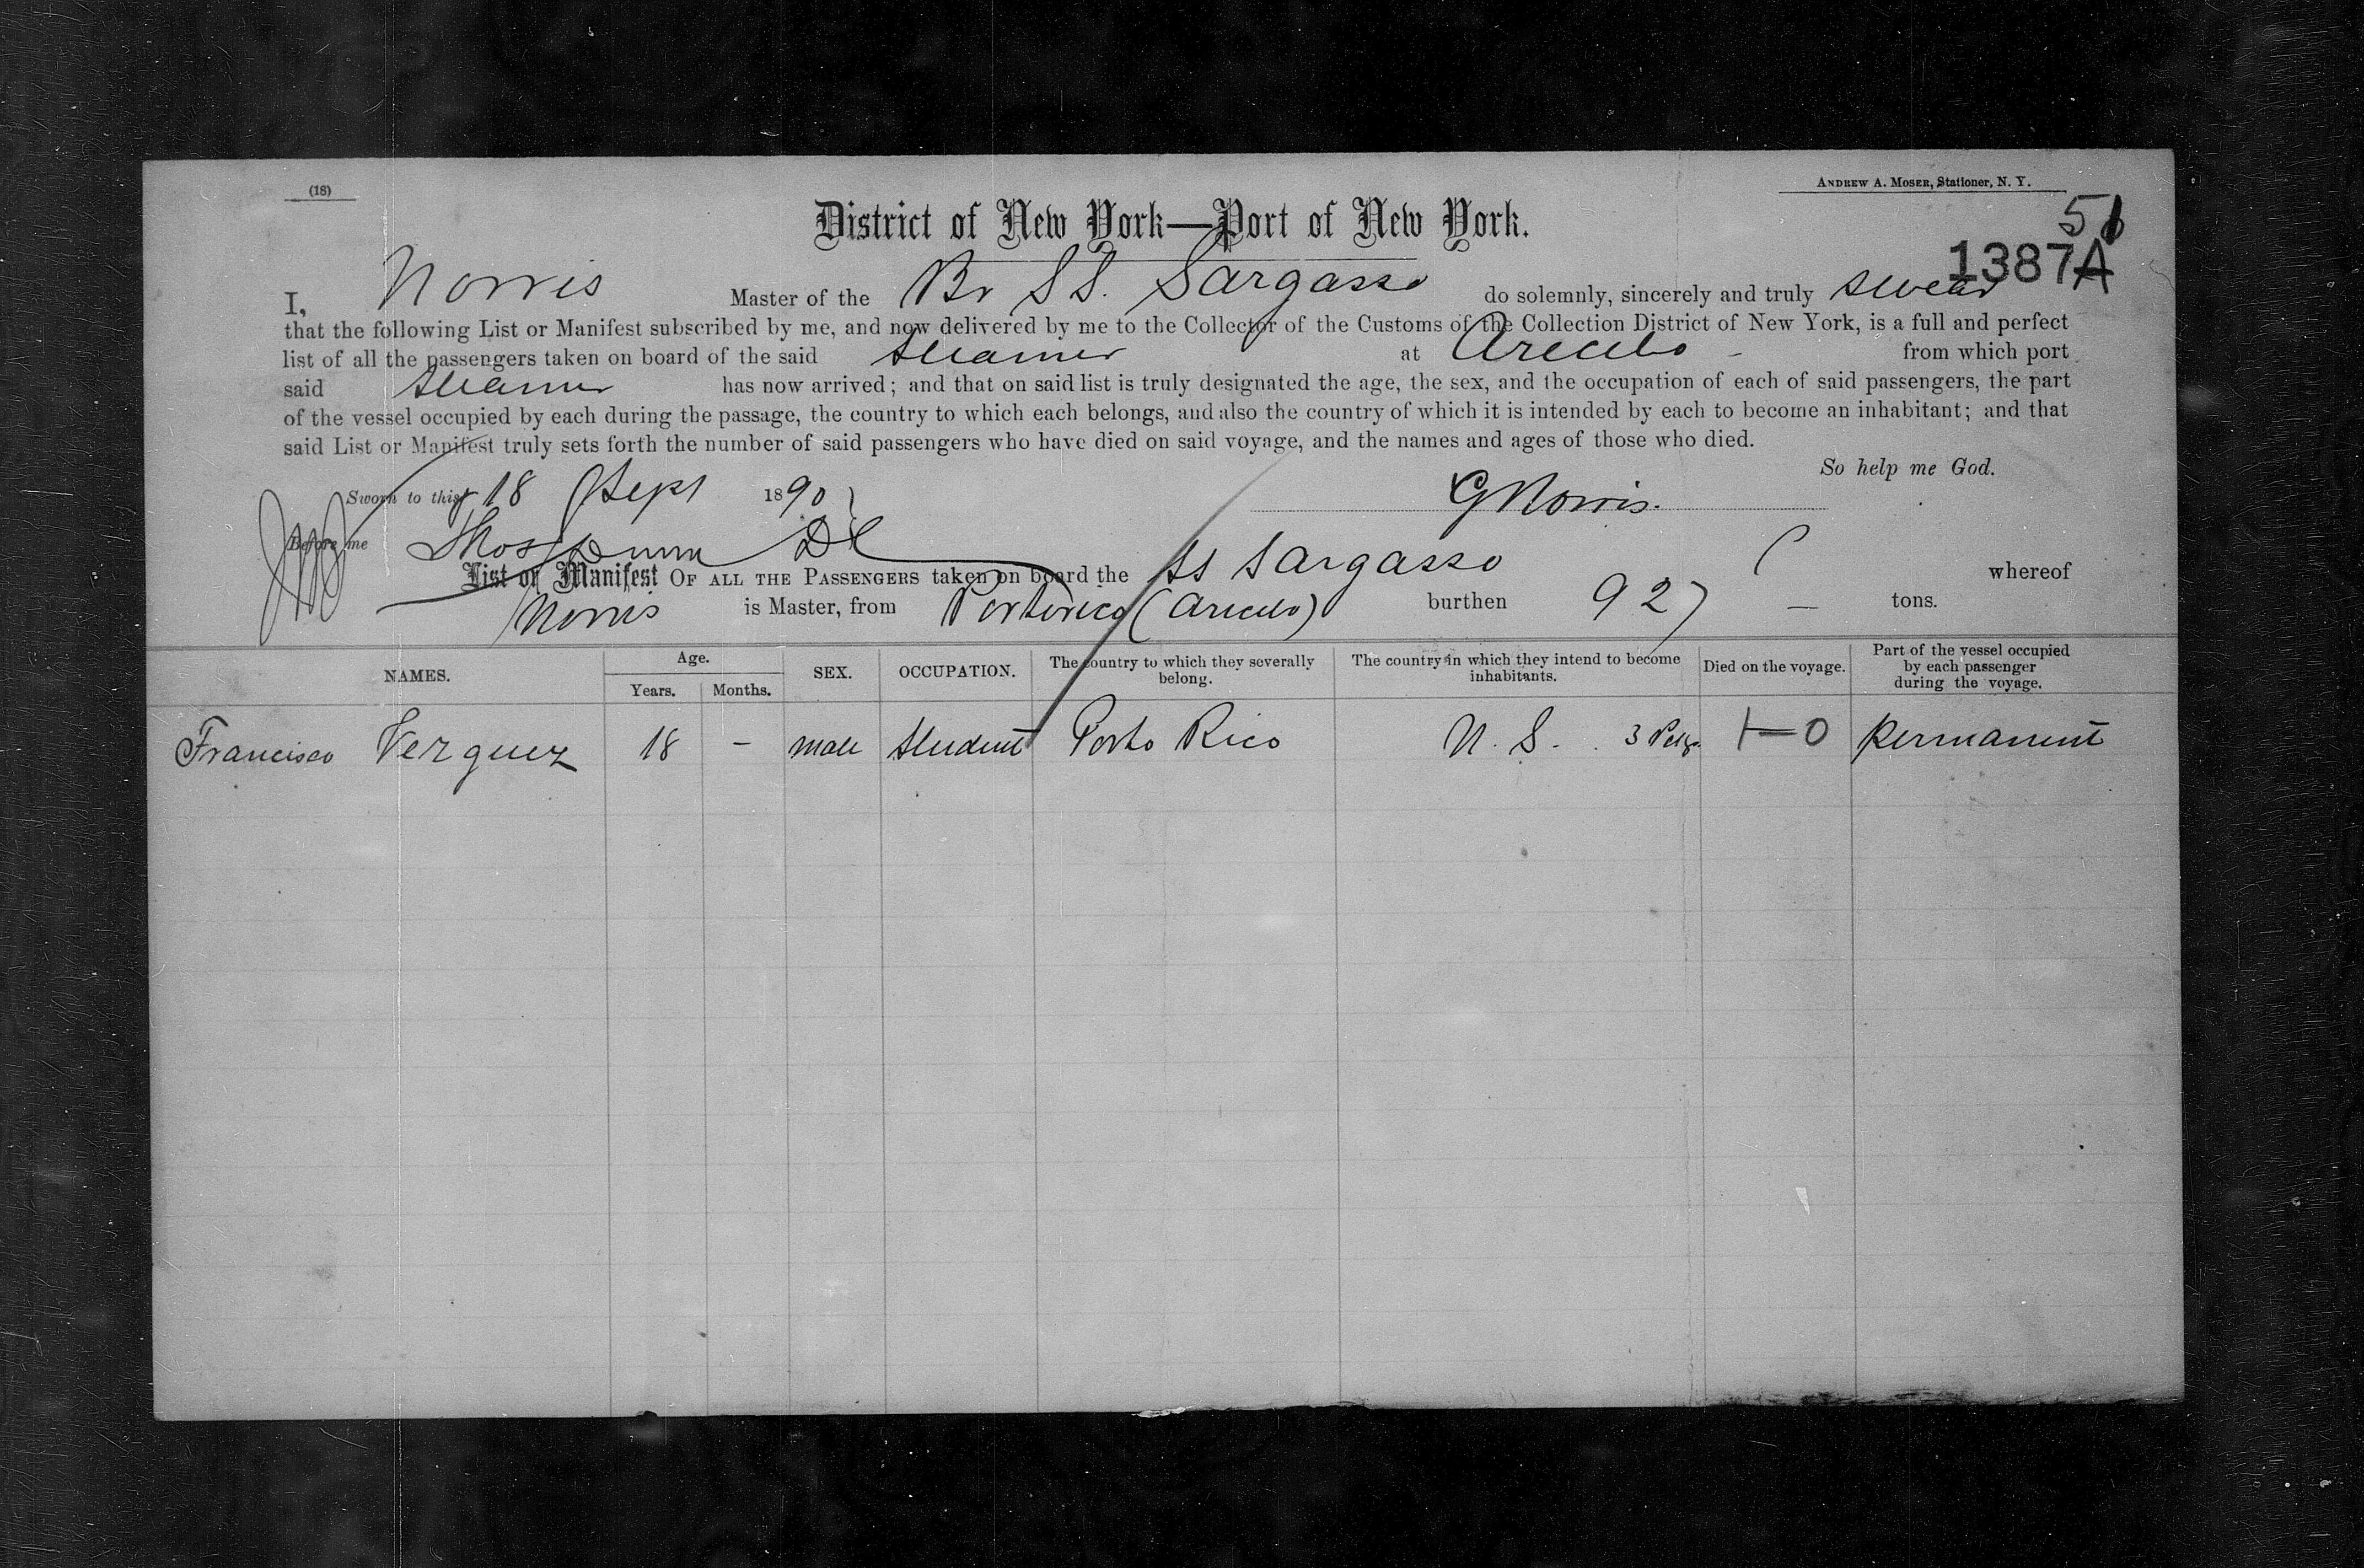 (18)
ANDREW A. MOSER, Stationer, N. Y.
District of New York—Port of New York.
51
1387A
I, Norris Master of the Br SS. Sargasso do solemnly, sincerely and truly swear
that the following List or Manifest subscribed by me, and now delivered by me to the Collector of the Customs of the Collection District of New York, is a full and perfect
list of all the passengers taken on board of the said Steamer at Arecibo - from which port
said Steamer has now arrived; and that on said list is truly designated the age, the sex, and the occupation of each of said passengers, the part
of the vessel occupied by each during the passage, the country to which each belongs, and also the country of which it is intended by each to become an inhabitant; and that
said List or Manifest truly sets forth the number of said passengers who have died on said voyage, and the names and ages of those who died.
So help me God.
Sworn to this 18 Sept 1890
G Norris.
Before me Thos
List or Manifest OF ALL THE PASSENGERS taken on board the SS Sargasso whereof
Norris is Master, from Portorico (Arecibo) burthen 927 — tons.
NAMES. Age. Years. Months. SEX. OCCUPATION. The country to which they severally belong. The country in which they intend to become inhabitants. Died on the voyage. Part of the vessel occupied by each passenger during the voyage.
Francisco Verguez 18 - male Student Porto Rico U. S. 3 Pkgs. 1—0 Permanent